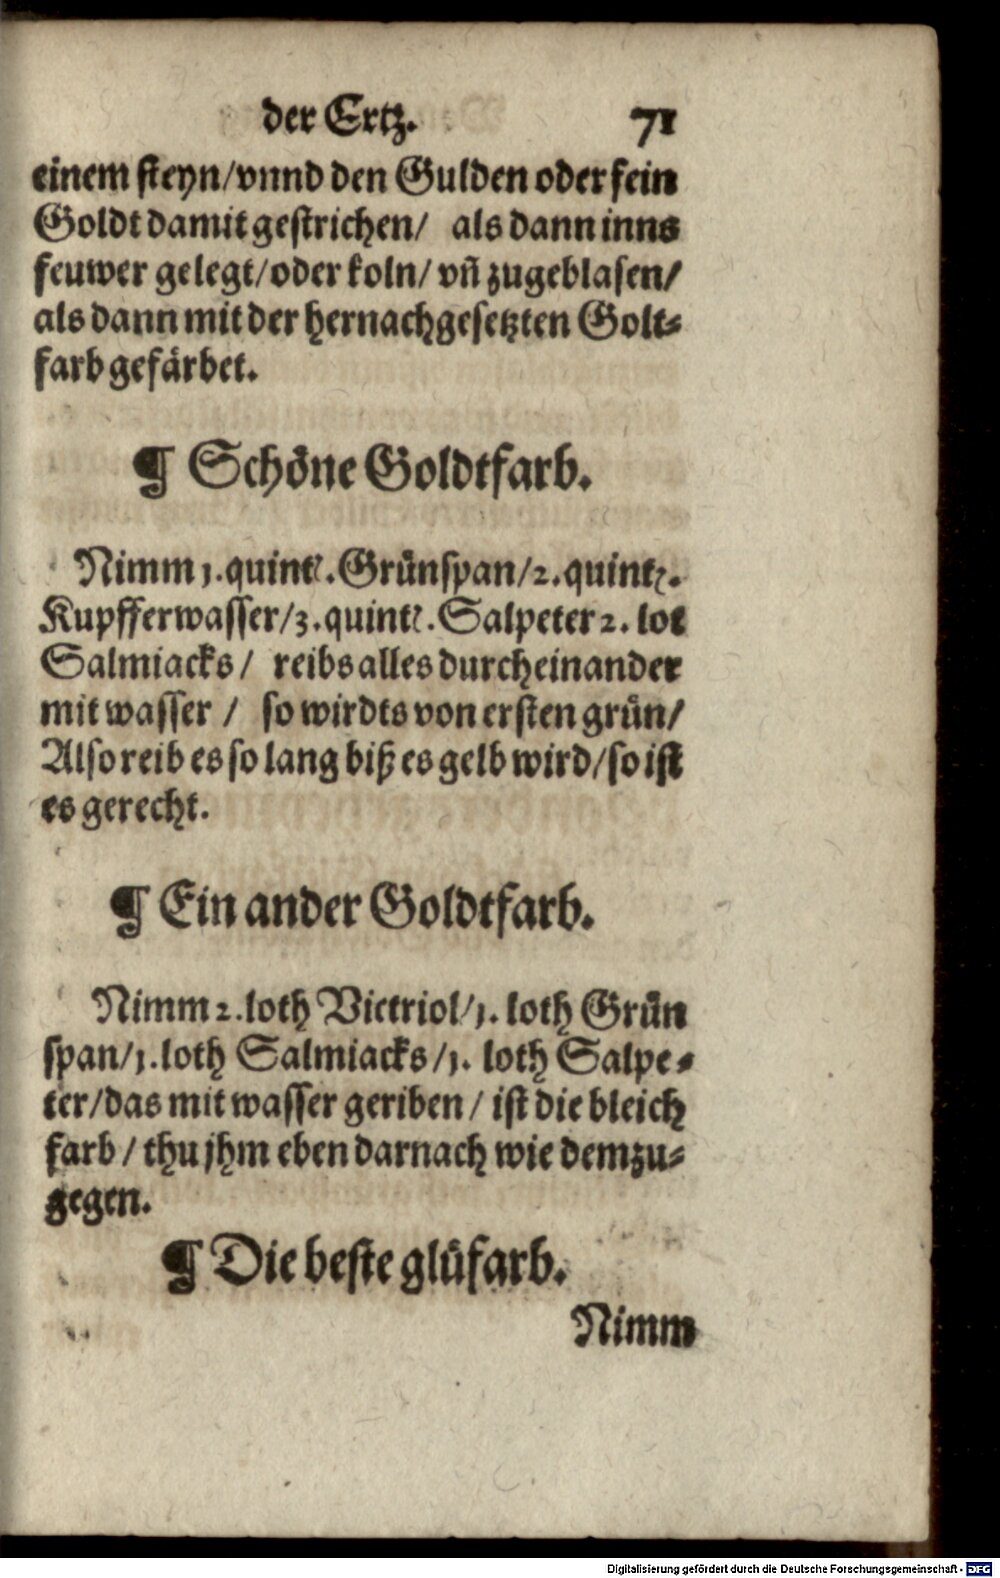 der Ertz. 71
einem steyn/vnnd den Gulden oder fein
Goldt damit gestrichen/ als dann inns
feuwer gelegt/oder koln/ vñ zugeblasen/
als dann mit der hernachgesetzten Golt⸗
farb gefärbet.
¶ Schöne Goldtfarb.
Nimm 1. quintl. Grünspan/2. quintl.
Kupfferwasser/3. quintl. Salpeter 2. lot
Salmiacks/ reibs alles durcheinander
mit wasser / so wirdts von ersten grün/
Also reib es so lang biß es gelb wird/so ist
es gerecht.
¶ Ein ander Goldtfarb.
Nimm 2. loth Victriol/1. loth Grün
span/1. loth Salmiacks/1. loth Salpe⸗
ter/das mit wasser geriben/ ist die bleich
farb / thu jhm eben darnach wie demzu⸗
gegen.
¶ Die beste glüfarb.
Nimm
Digitalisierung gefördert durch die Deutsche Forschungsgemeinschaft - DFG